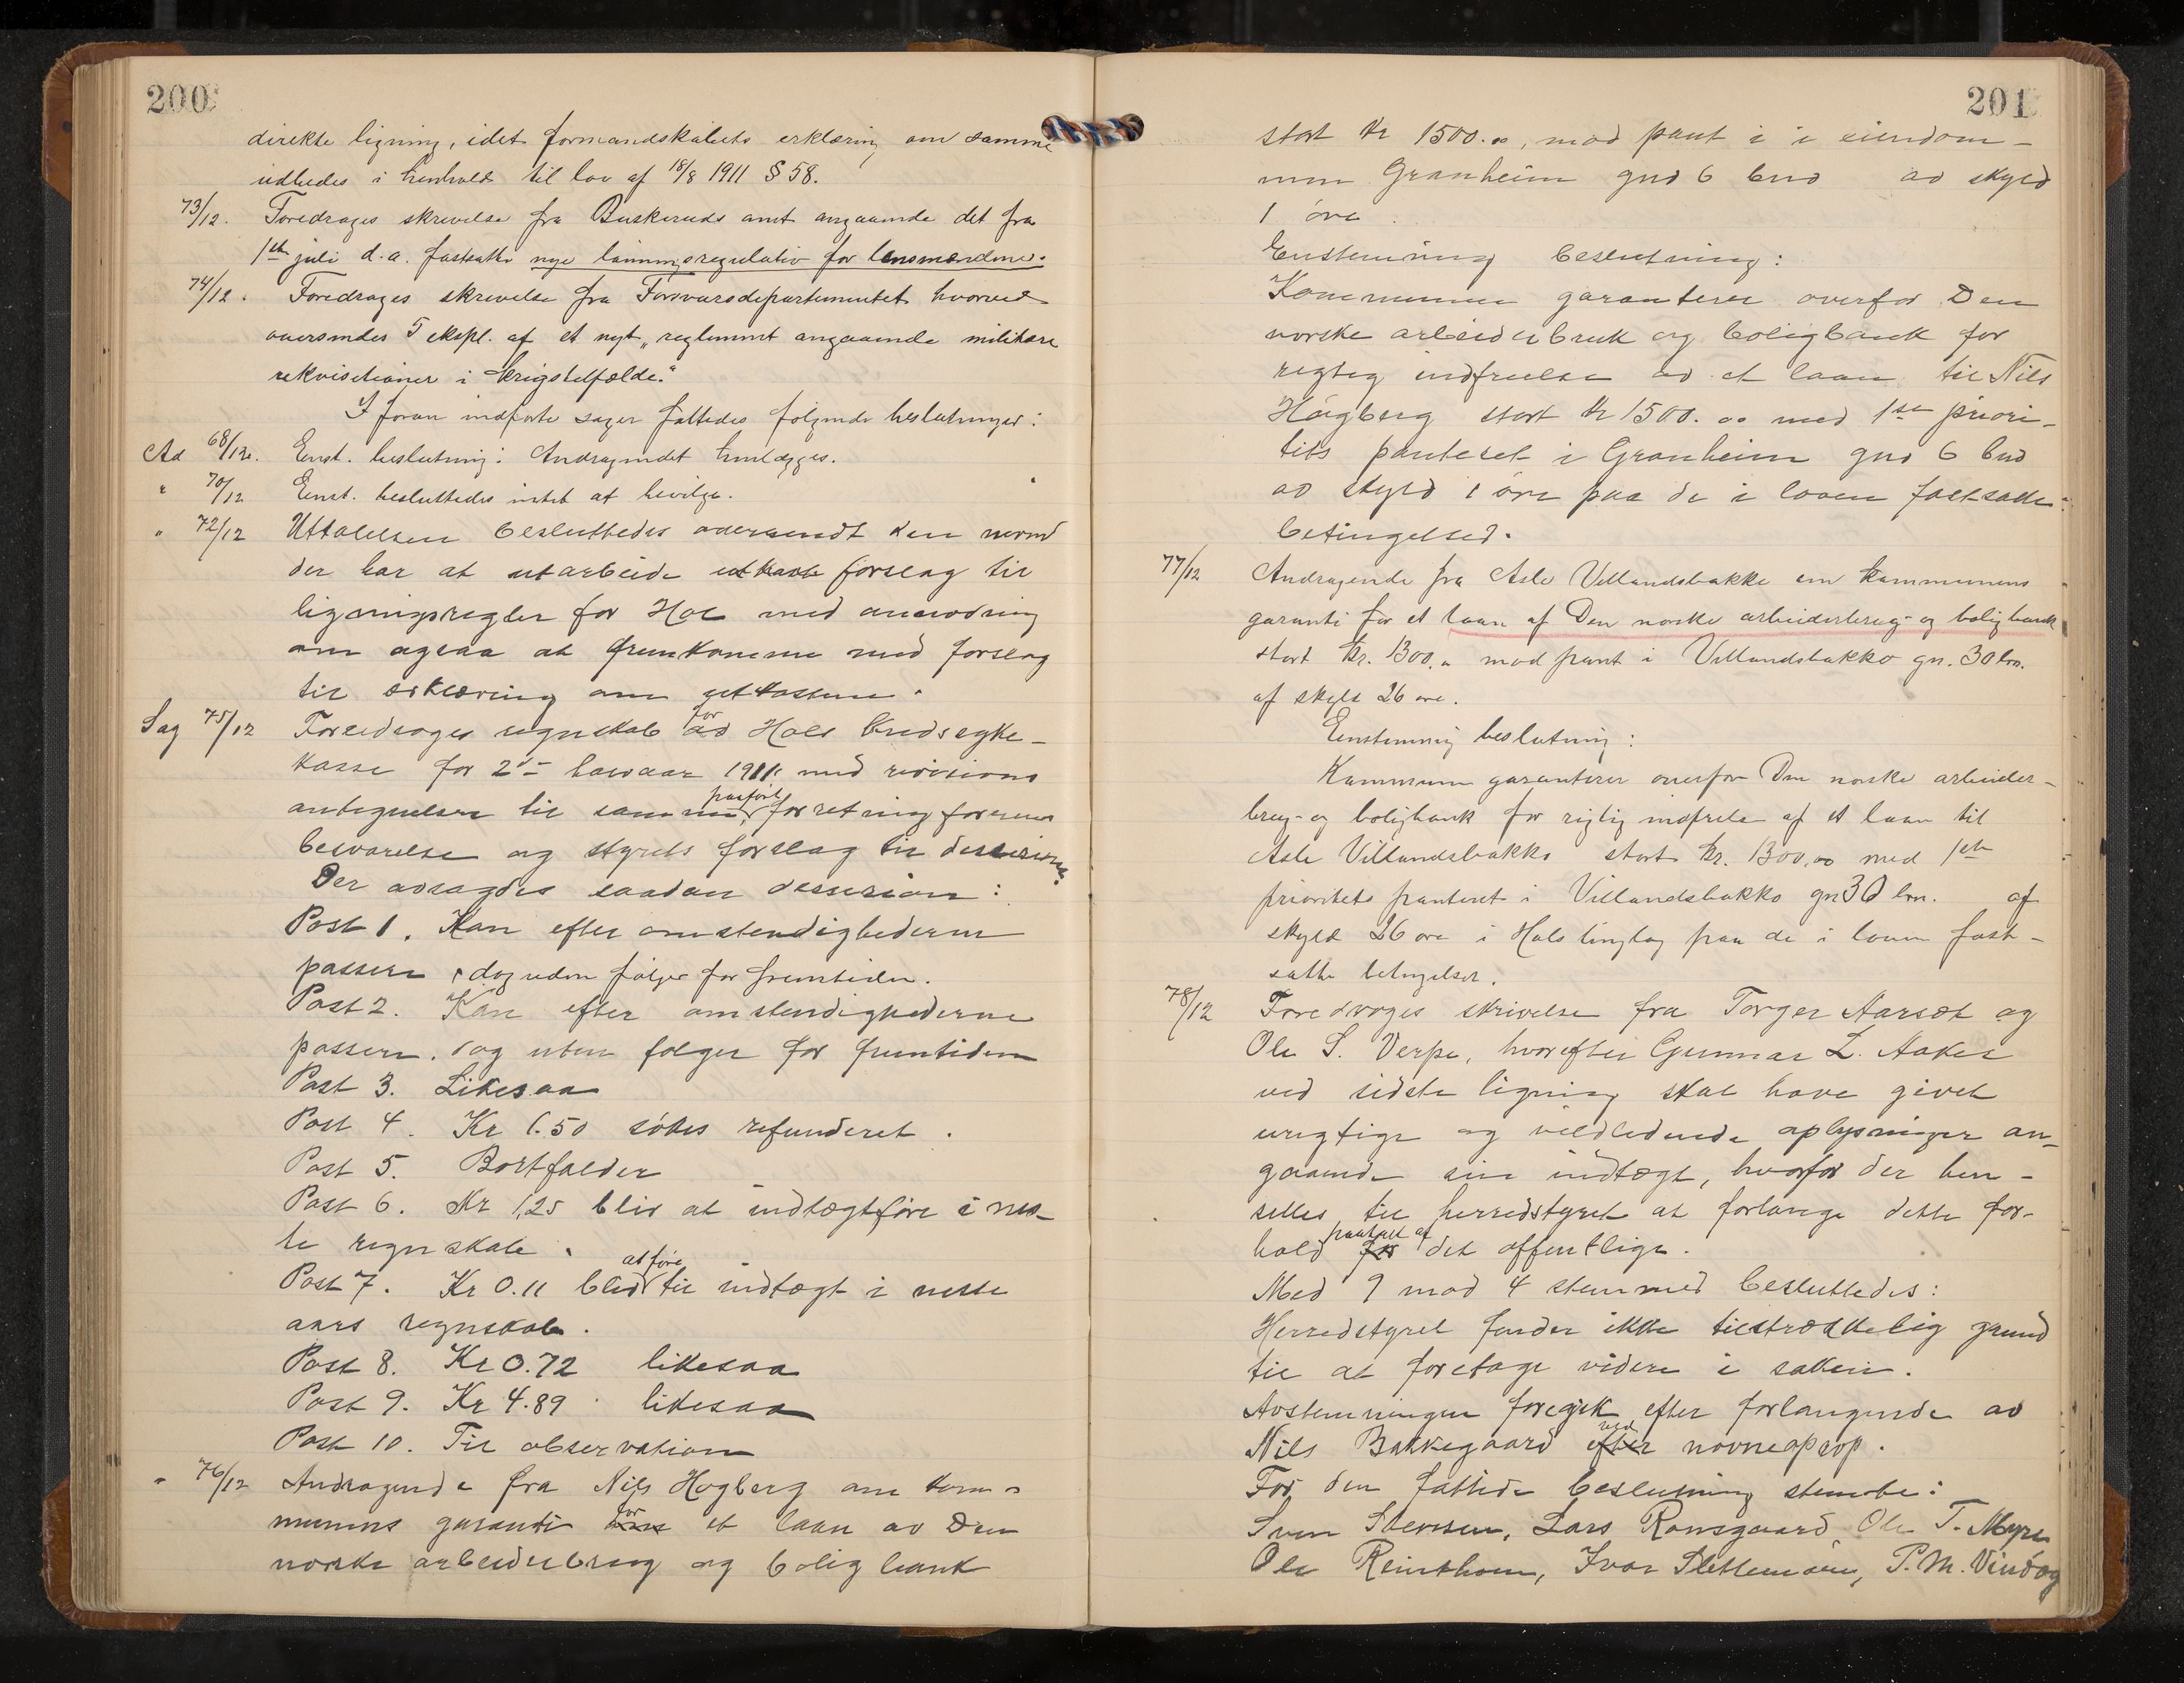 200
direkte ligning, idet formandskabets erklæring om samme
udbedes i henhold til lov af 18/8 1911 § 58.
73/12. Foredrages skrivelse fra Buskeruds amt angaaende det fra
1ste juli d.a. fastsatte nye lönningsregulativ for lensmændene.
74/12. Foredrages skrivelse fra Forsvarsdepartementet hvorved
oversendes 5 ekspl. af et nyt „reglement angaaende militære
rekvisitioner i krigstilfælde."
I foran indførte sager fattedes følgende beslutninger:
Ad 68/12. Enst. beslutning: Andragendet henlægges.
" 70/12 Enst. besluttedes intet at bevilge.
" 72/12 Uttalelsen besluttedes oversendt den nevnd
der har at utarbeide utkast forslag til
ligningsregler for Hol med anmodning
om ogsaa at fremkomme med forslag
til erklæring om utkastene.
Sag 75/12 Foredroges regnskab ad for Hols bredsygke-
kasse for 2det halvaar 1911 med revisions
antegnelser til samme, paaført forretningsførerens
besvarelse og styrets forslag til dessision.
Der avsagdes saadan dessision:
Post 1. Kan efter omstendighederne
passere, dog uden følger for fremtiden.
Post 2. Kan efter omstendighederne
passere. dog uten følger for fremtiden
Post 3. Likesaa
Post 4. Kr 6.50 sökes refunderet.
Post 5. Bortfalder
Post 6. Kr 1,25 bliv at indtægtføre i nes-
te regnskab.
Post 7. Kr 0.11 bliv at føre til indtægt i neste
aars regnskab.
Post 8. Kr 0.72 likesaa
Post 9. Kr 4.89 likesaa
Post 10. Til observation
" 76/12 Andragende fra Nils Hogberg om kom-
munens garanti for et laan av Den
norske arbeiderbrug og bolig bank
201
stort Kr 1500.00, mod pant i i eiendom-
men Granheim gno 6 bno av skyld
1 öre.
Enstemmig beslutning:
Kommunen garanterer overfor Den
norske arbeiderbruk og boligbank for
rigtig indfrielse av et laan til Nils
Högberg stort Kr 1500.00 med 1ste priori-
tets panteret i Granheim gno 6 bno
av skyld 1 öre paa de i loven fastsatte
betingelser.
77/12 Andragende fra Asle Villandsbakke om kommunens
garanti for et laan af Den norske arbeiderbrug- og boligbank
stort kr. 1300.00 mod pant i Villandsbakko gn. 30 bn.
af skyld 26 øre.
Enstemmig beslutning:
Kommunen garanterer overfor Den norske arbeider-
brug- og boligbank for rigtig indfrielse af et laan til
Asle Villandsbakke stort kr. 1300,00 med 1ste
prioritets panteret i Villandsbakko gn 30 bn. af
skyld 26 øre i Hols tinglag paa de i loven fast-
satte betingelser.
78/12 Foredroges skrivelse fra Torger Aarset og
Ole S. Verpe, hvorefter Gunnar L. Aaker
ved sidste ligning skal have givet
urigtige og vildledende oplysninger an-
gaaende sin indtægt, hvorfor der hen-
stilles til herredstyret at forlange dette for-
hold paatalt af det offentlige.
Med 9 mod 4 stemmer besluttedes:
Herredstyret finder ikke tilstrækkelig grund
til at foretage videre i saken.
Avstemningen foregik efter forlangende av
Nils Bakkegaard efter ved navneoprop.
For den fattede beslutning stemte:
Sven Svensen, Lars Ramsgaard Ole T. Myre
Ole Reinthon, Ivar Slettemoen, P. M. Vindög